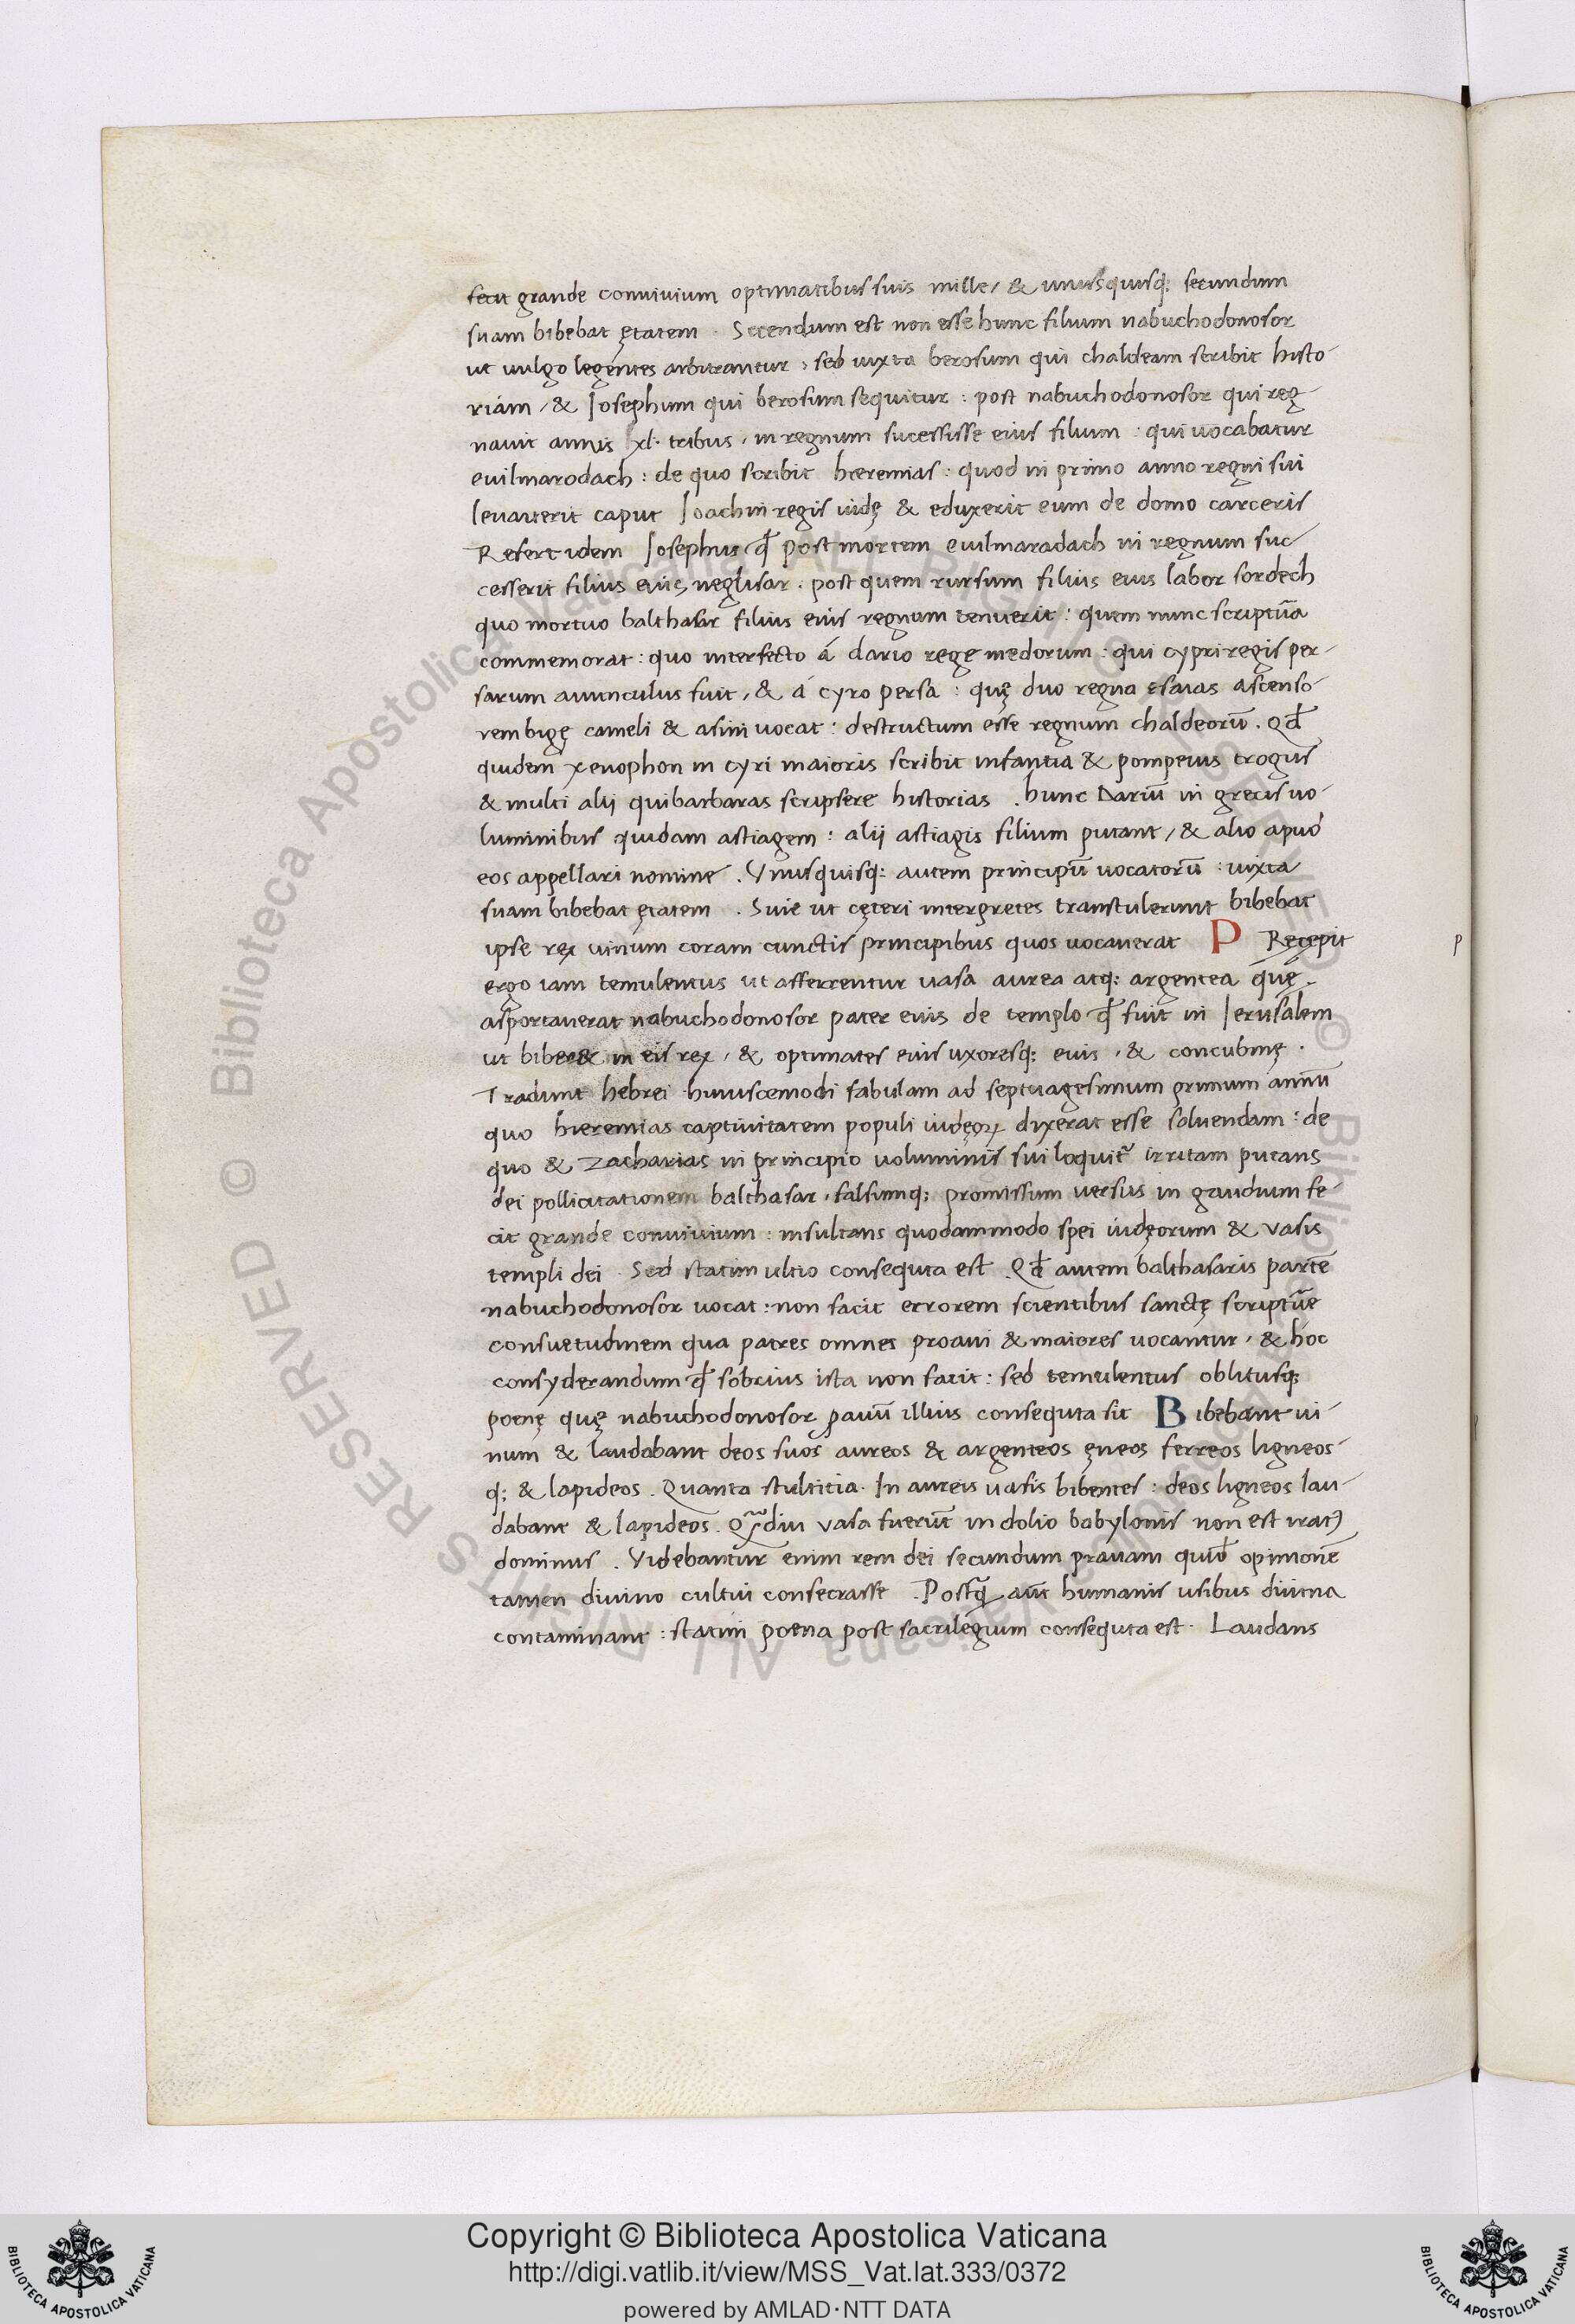 fecit grande convivium optimatibus suis mille, & unusquisq; secundum
suam bibebat ętatem . Sciendum est non esse hunc filium nabuchodonosor
ut vulgo legentes arbitrantur : sed iuxta berosum qui chaldeam scribit histo-
riam , & Josephum qui berosum sequitur : post nabuchodonosor qui reg-
navit annis xl. tribus , in regnum sucessisse eius filium : qui vocabatur
evilmarodach : de quo scribit hieremias : quod in primo anno regni sui
levaverit caput Joachin regis iudę & eduxerit eum de domo carceris
Refert idem Josephus qđ post mortem evilmaradach in regnum suc
cesserit filius eius neglisar . post quem rursum filius eius labor sordech
quo mortuo balthasar filius eius regnum tenuerit : quem nunc scriptũa
commemorat : quo interfecto á dario rege medorum : qui cypri regis per-
sarum avunculus fuit , & á cyro persa : quę duo regna esaias ascenso-
rem bigę cameli & asini vocat : destructum esse regnum chaldeorũ . Qđ
quidem xenophon in cyri maioris scribit infantia & pompeius trogus
& multi alij qui barbaras scripsere historias . hunc Dariũ in grecis vo-
luminibus quidam astiagem : alij astiagis filium putant , & alio apud
eos appellari nomine . Vnusquisq; autem principũ vocatorũ : iuxta
suam bibebat ętatem . Sive ut cęteri intergretes transtulerunt bibebat
ipse rex vinum coram cunctis principibus quos vocaverat P Recepit
ergo iam temulentus ut afferrentur vasa aurea atq; argentea quę
asportaverat nabuchodonosor pater eius de templo qđ fuit in Jerusalem
ut biber& in eis rex , & optimates eius uxoresq; eius , & concubinę .
Tradunt hebrei huiuscemodi fabulam ad septuagesimum primum annũ
quo hieremias captivitatem populi iudęoꝝ dixerat esse solvendam : de
quo & Zacharias in principio voluminis sui loquit᷑ irritam putans
dei pollicitationem balthasar , falsumq; promissum versus in gaudium fe-
cit grande convivium : insultans quodammodo spei iudęorum & vasis
templi dei . Sed statim ultio consequta est . Qđ autem balthasaris partẽ
nabuchodonosor vocat : non facit errorem scientibus sanctę scriptũe
consuetudinem qua patres omnes proavi & maiores vocantur , & hoc
consyderandum qđ sobrius ista non facit : sed temulentus oblitusq;
poenę quę nabuchodonosor ꝓavũ illius consequta sit Bibebant vi-
num & laudabant deos suos aureos & argenteos ęneos ferreos ligneos-
q; & lapideos . Quanta stultitia . In aureis vasis bibentes : deos ligneos lau-
dabant & lapideos . Q̃diu vasa fuerũt in dolio babylonis non est irat⁹
dominus . Videbantur enim rem dei secundum pravam quid̃ opinionẽ
tamen divino cultui consecrasse . Postq̃ aũt humanis usibus divina
contaminant : statim poena post sacrilegium consequta est . Laudans
p
Copyright © Biblioteca Apostolica Vaticana
http://digi.vatlib.it/view/MSS_Vat.lat.333/0372
powered by AMLAD·NTT DATA